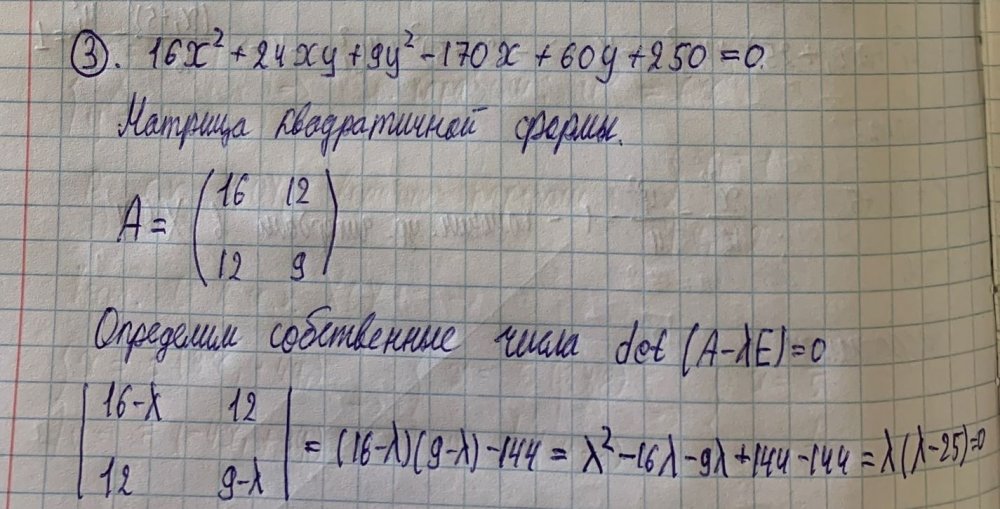 ③. 16x² + 24xy + 9y² - 170x + 60y + 250 = 0.
Матрица квадратичной формы.
A = (16 12
12 9)
Определим собственные числа det (A-λE)=0
|16-λ 12
12 9-λ| = (16-λ)(9-λ) - 144 = λ² - 16λ - 9λ + 144 - 144 = λ(λ-25)=0